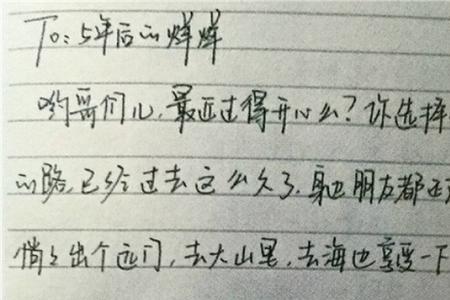 To:5年后的烊烊
哟哥们儿,最近过得开心么?你选择
的路,已经过去这么久了,身边朋友都还
悄悄出个远门,去大山里,去海边享受一下